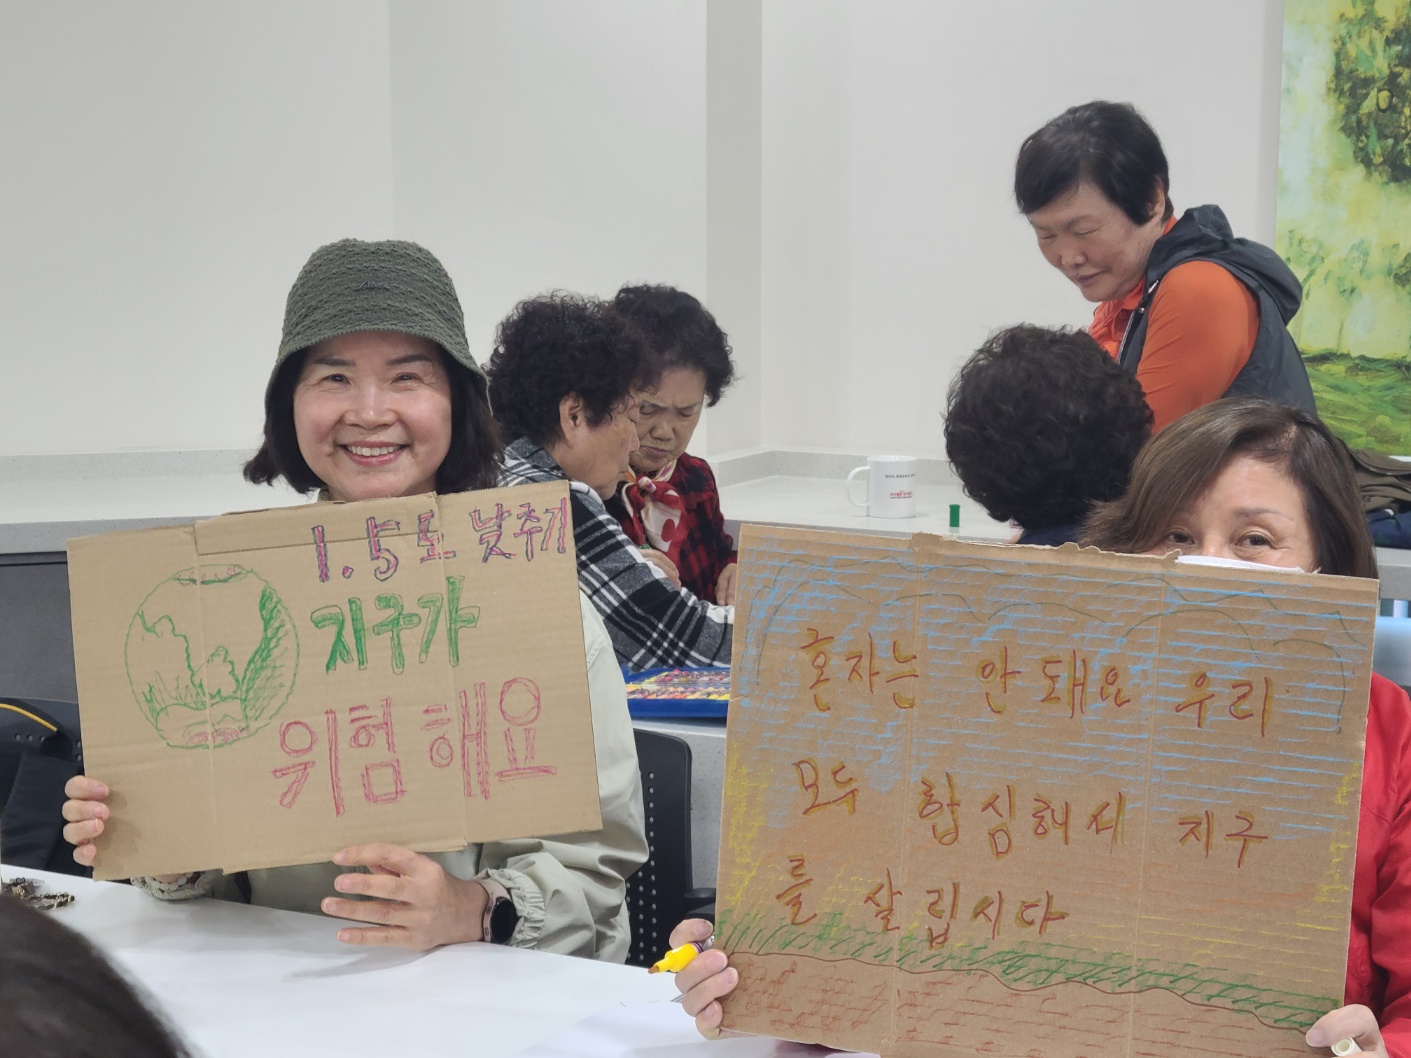 1.5도 낮추기
지구가
위험해요
혼자는 안돼요 우리
모두 합심해서 지구
를 살립시다